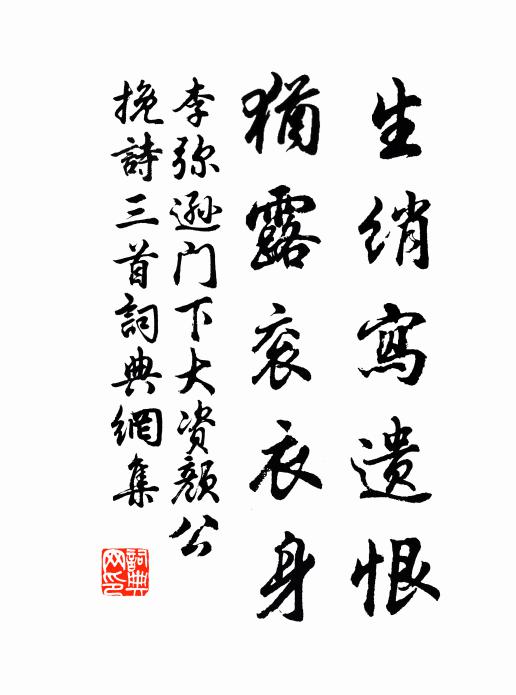 生绡寫遗恨
犹露衮衣身
李弥逊门下大资颜公
挽詩三首詞典網集
詞典網印